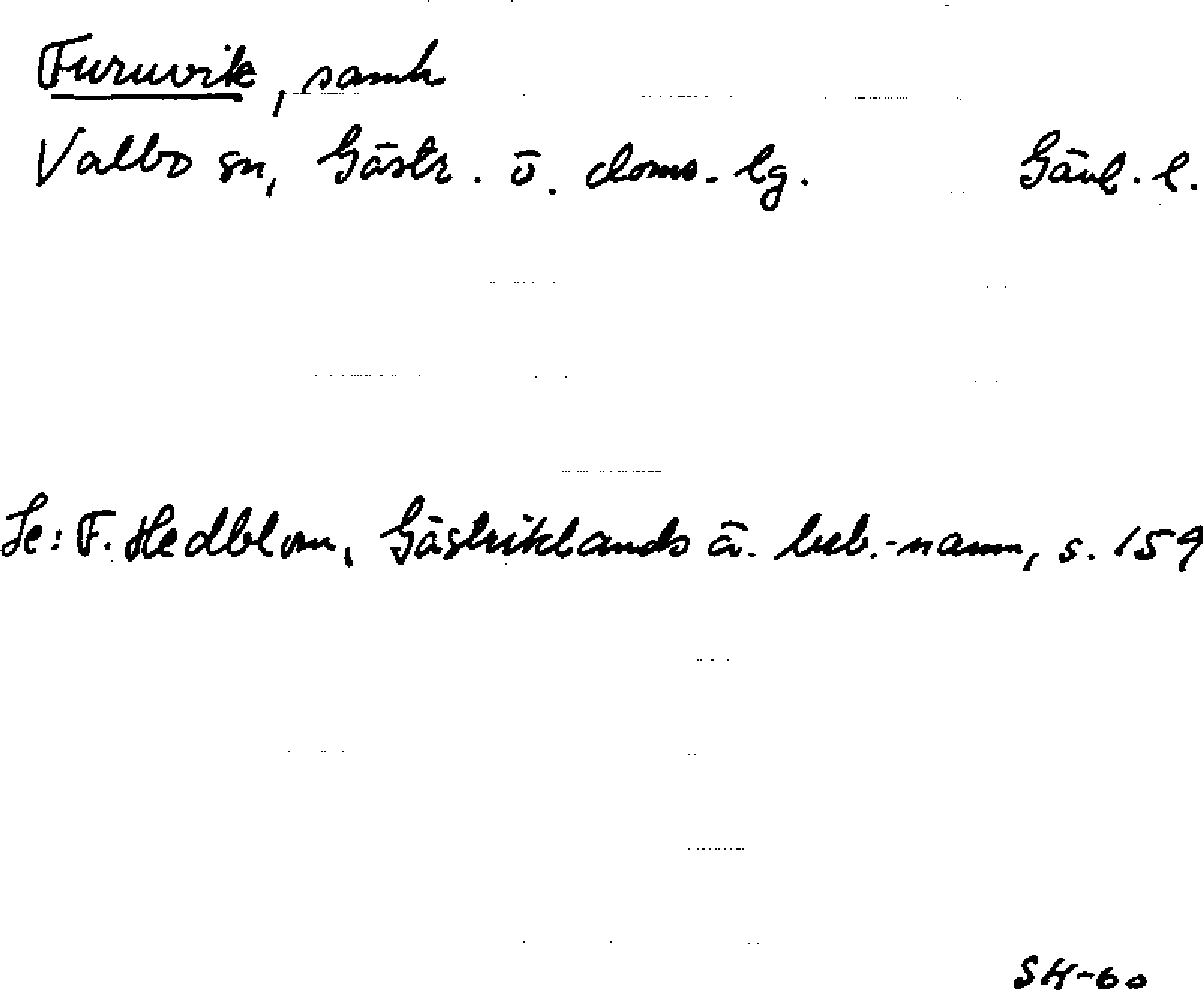 Furuvik, samh
Valbo sn, Gästr. ö. doms. lg. Gävl. l.
Se: F. Hedblom, Gästriklands ä. beb.-namn, s. 159
SH-60